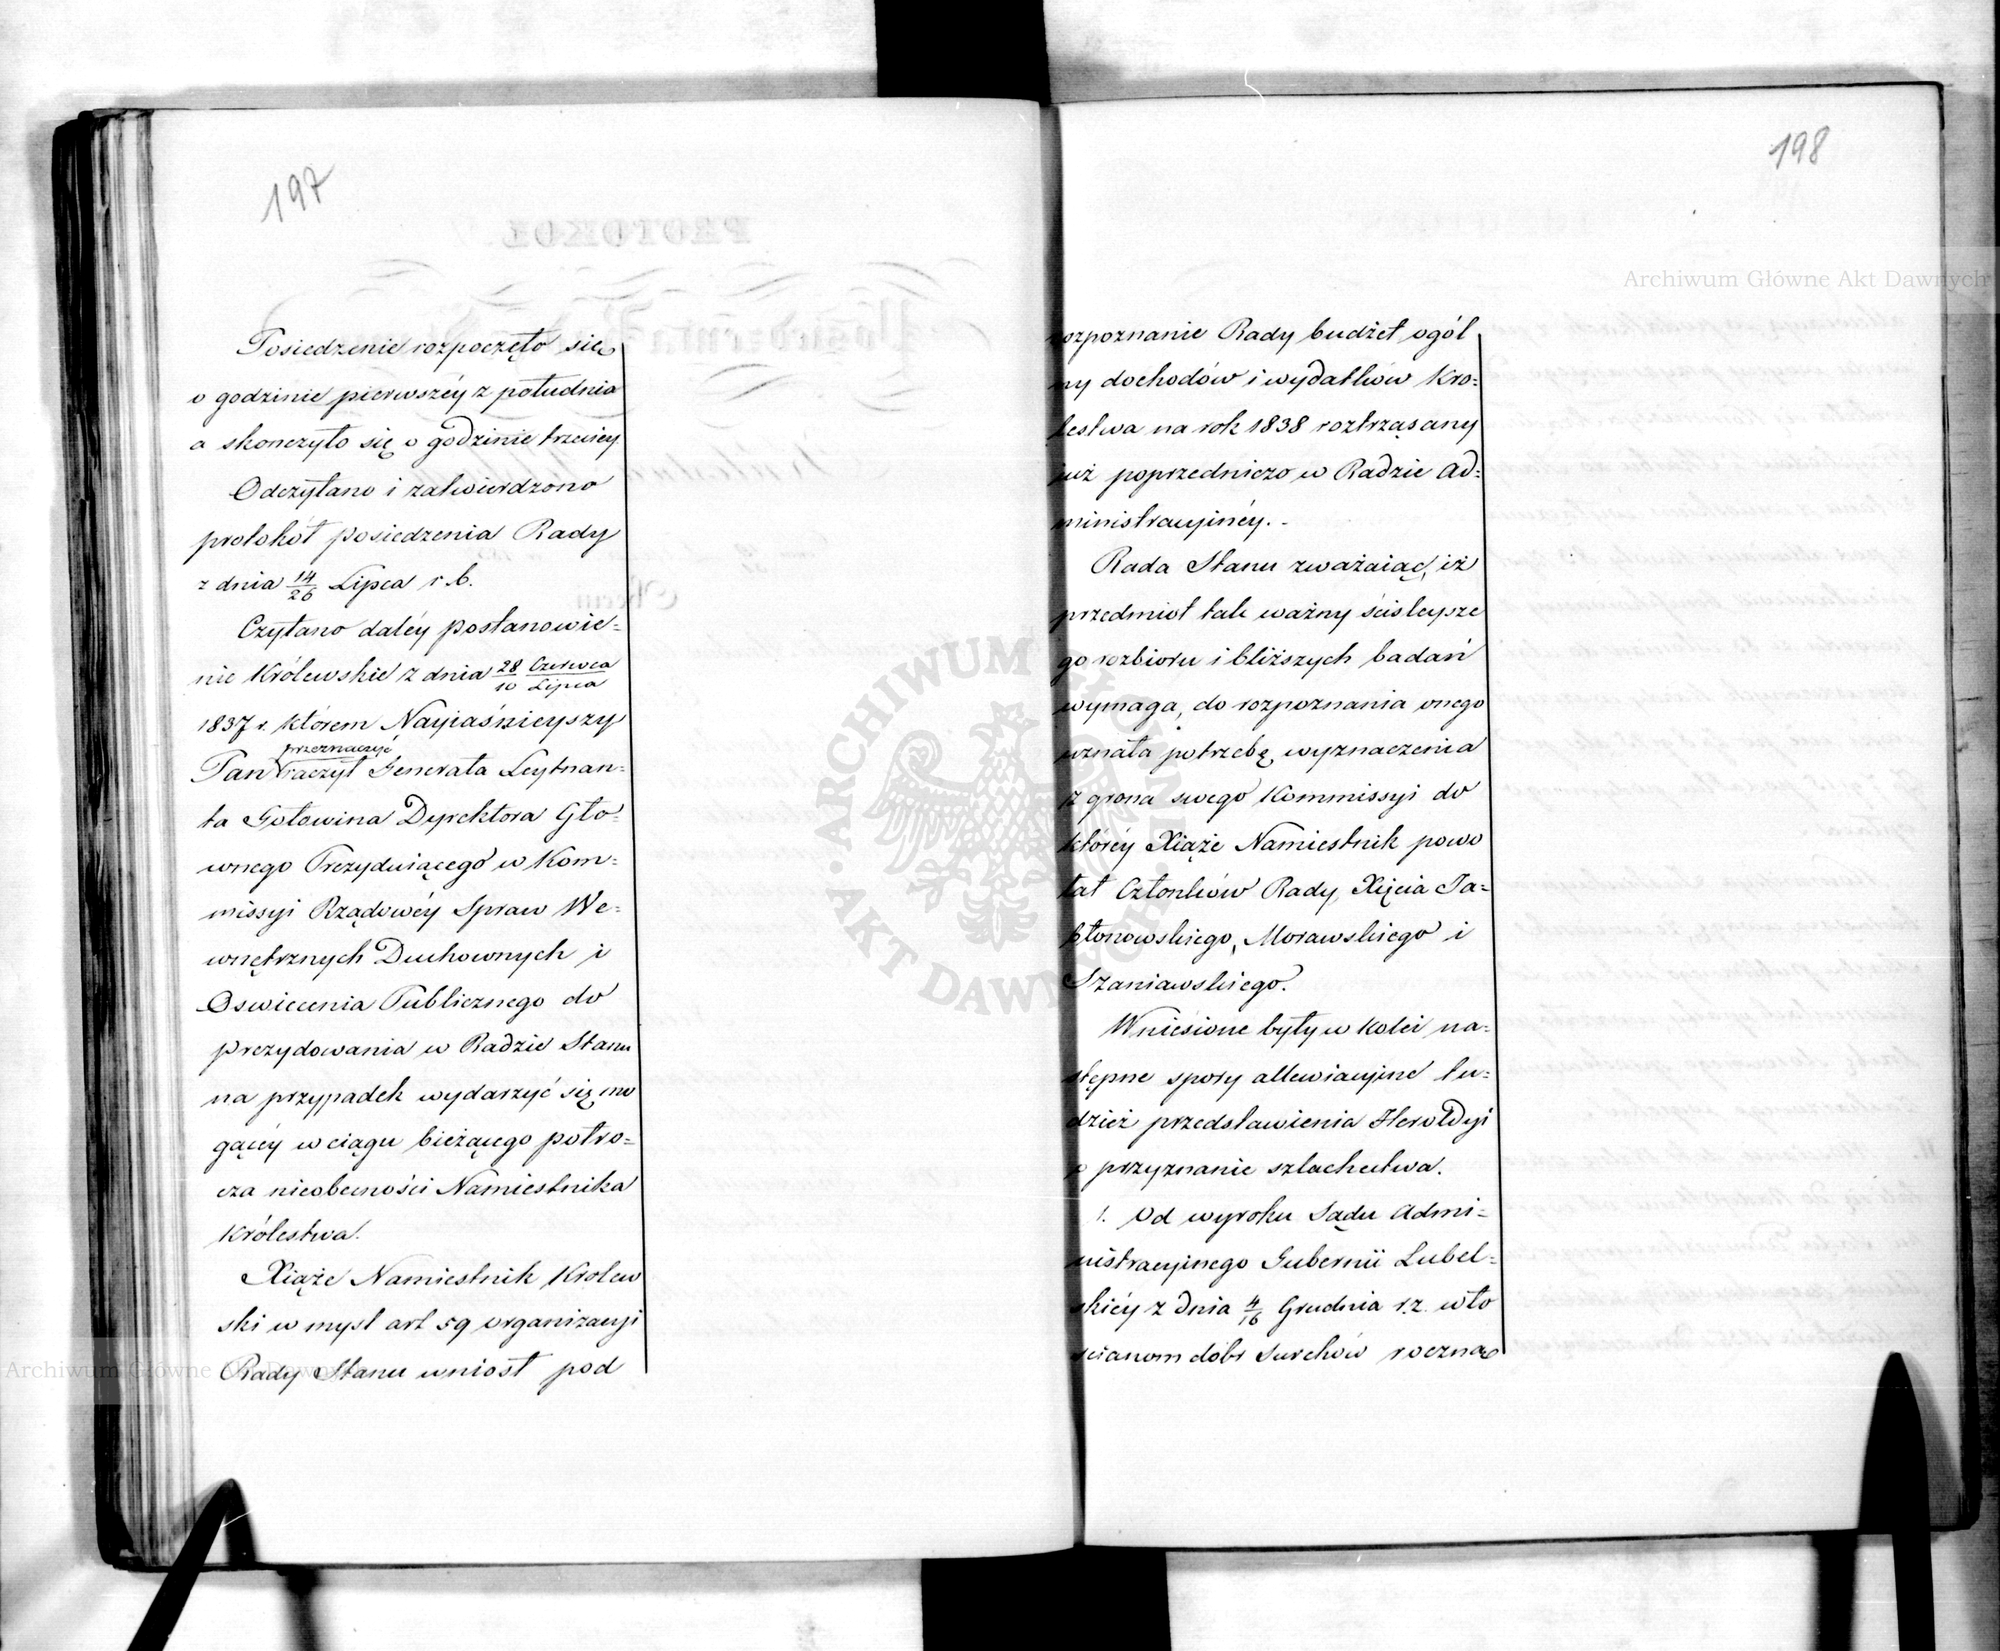 197
Posiedzenie rozpoczęło się
o godzinie pierwszéy z południa
a skonczyło się o godzinie trzeciey
Odczytano i zatwierdzono
protokół posiedzenia Rady
z dnia 14/26 Lipca r. b.
Czytano daléy postanowie=
nie Królewskie z dnia 28 Czerwca/10 Lipca
1837 r. którem Nayiaśnieyszy
przeznaczyć
Pan raczył Generała Leytnan=
ta Gołowina Dyrektora Gło=
wnego Prezyduiącego w Kom=
missyi Rządowéy Spraw We=
wnętrznych Duchownych i
Oswiecenia Publicznego do
prezydowania w Radzie Stanu
na przypadek wydarzyć się mo
gącéy w ciągu bieżącego połro=
cza nieobecności Namiestnika
Królestwa.
Xiąże Namiestnik Krolew
ski w mysl art 59 organizacyi
Rady Stanu wniosł pod
198
rozpoznanie Rady budżet ogól
ny dochodów i wydatków Kro=
lestwa na rok 1838 roztrząsany
już poprzedniczo w Radzie Ad=
ministracyinéy.-
Rada Stanu zważaiąc, iż
przedmiot tak ważny ścisleysze
go rozbioru i bliższych badań
wymaga, do rozpoznania onego
uznała potrzebę wyznaczenia
z grona swego Kommissyi do
któréy Xiąże Namiestnik powo
łał Członków Rady, Xięcia Ja=
błonowskiego, Morawskiego i
Szaniawskiego.
Wniesione były w kolei na=
stępne spory allewiacyine tu=
dzież przedstawienia Heroldyi
o przyznanie szlachectwa.
1. Od wyroku Sądu Admi=
nistracyinego Gubernii Lubel=
skiéy z dnia 4/16 Grudnia r. z. wło
scianom dóbr Surchów roczną
PROTOKOŁ
Posiedzenia
ARCHIWUM GŁÓWNE AKT DAWNYCH
Archiwum Główne Akt Dawnych
Archiwum Główne Akt Dawnych